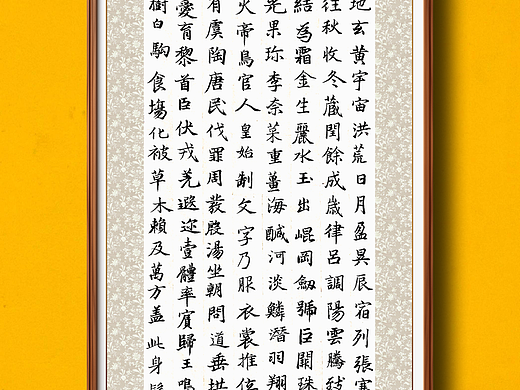 地玄黃宇宙洪荒日月盈昃辰宿列張寒
往秋收冬蔵閏餘成歳律呂調陽雲騰致
結為霜金生麗水玉出崐岡劔號巨闕珠
光果珎李奈菜重薑海醎河淡鱗潛羽翔
火帝鳥官人皇始制文字乃服衣裳推位
有虞陶唐民伐罪周發殷湯坐朝問道垂拱
愛育黎首臣伏戎羌遐迩壹體率賓歸王鳴
樹白駒食場化被草木賴及萬方盖此身髮